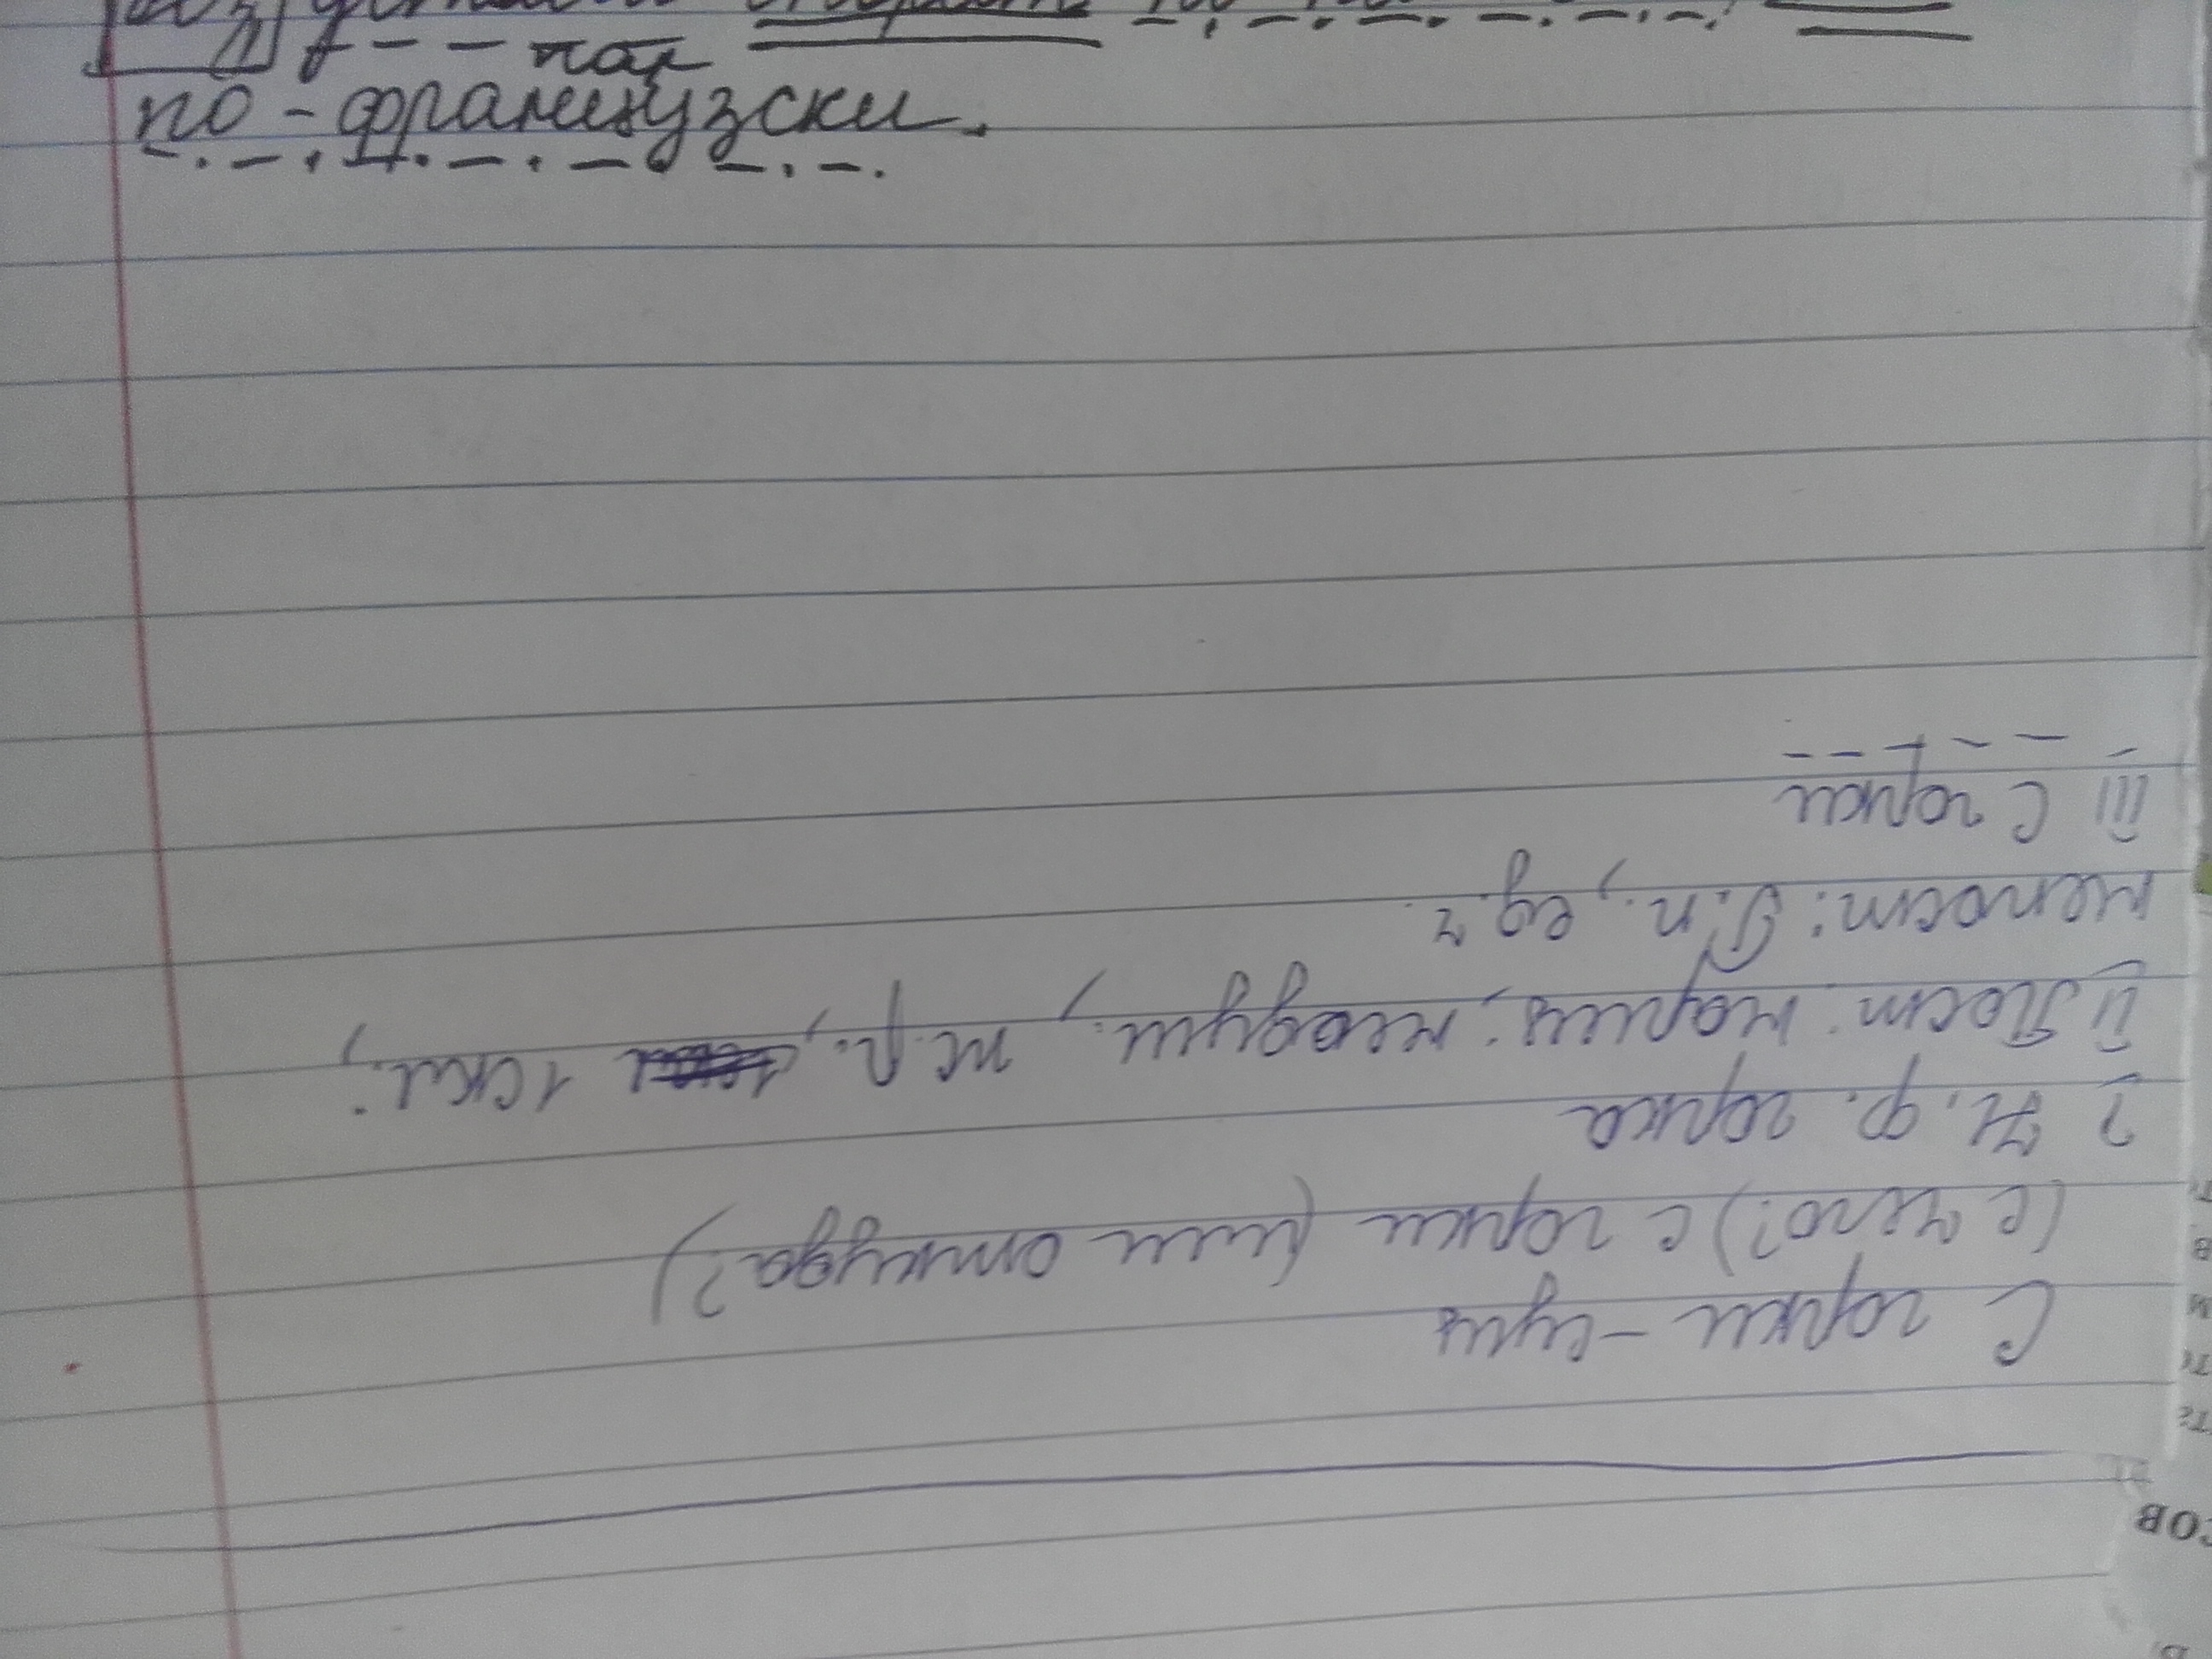 нар
по-французски.
С горки - сущ
(с чего?) с горки (или откуда?)
? Н. ф. горка
ii Пост: нариц; неодуш., ж.р., 1скл.;
непост: Р.п., ед. ч.
iii С горки
ОВ